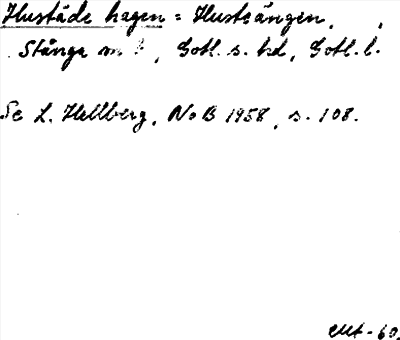 Hustäde hagen = Hustängen,
Stånga, Gotl. s. hd, Gotl. l.
Se L. Hellberg, NoB 1958, s. 108.